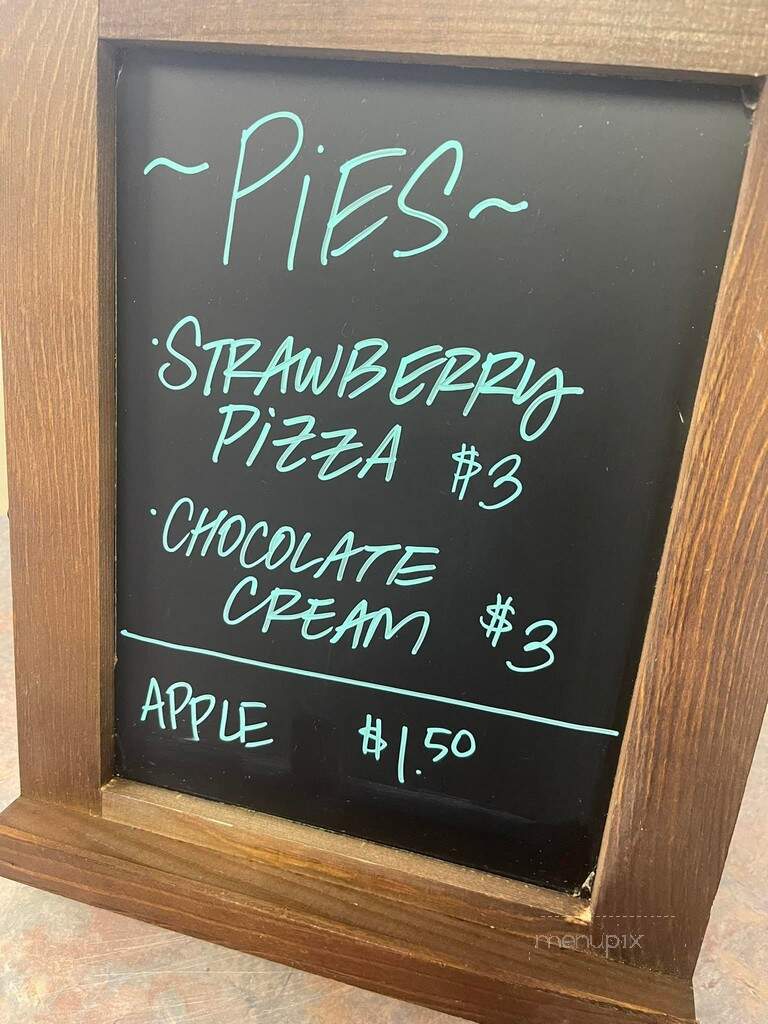 ~PiES~
·STRAWBERRY
PiZZA $3
·CHOCOLATE
CREAM $3
APPLE $1.50
menupix